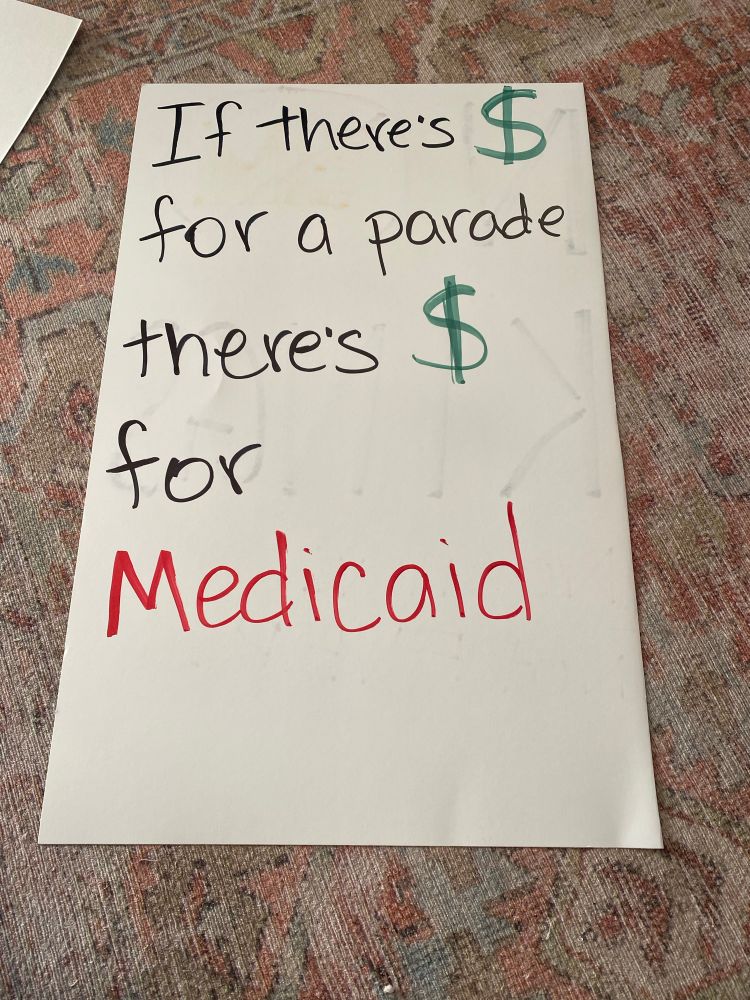 If there's $
for a parade
there's $
for
Medicaid